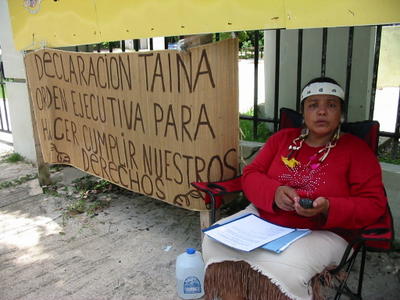 DECLARACION TAINA
ORDEN EJECUTIVA PARA
HACER CUMPLIR NUESTROS
DERECHOS